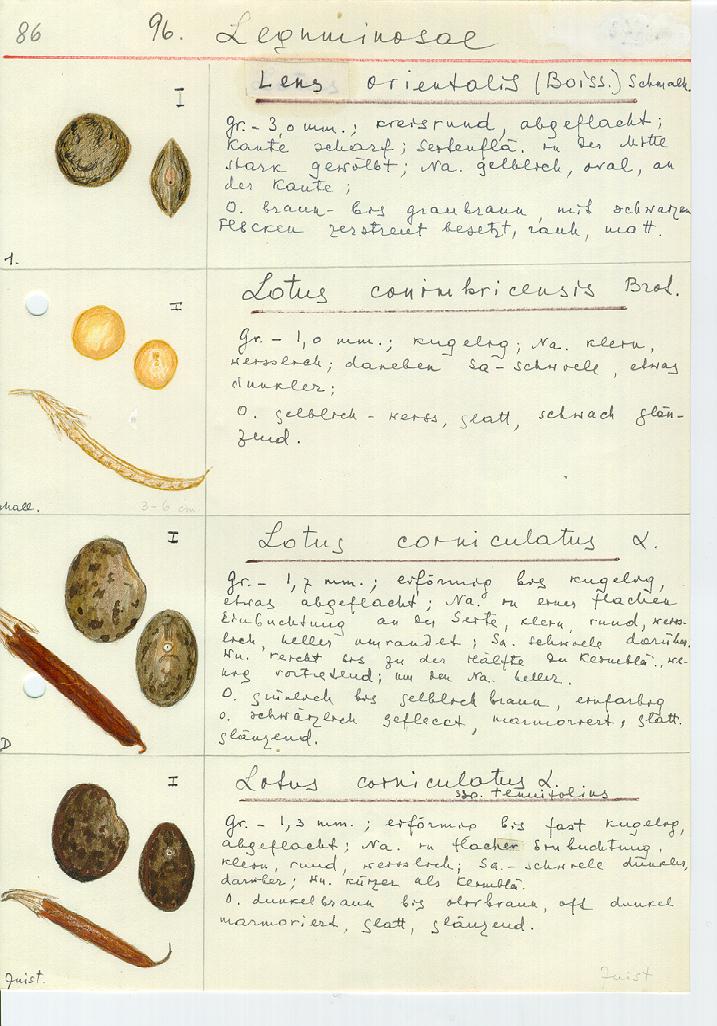 86 96. Leguminosae
I
Lens orientalis (Boiss.) Schmalh.
Gr. - 3,0 mm.; kreisrund, abgeflacht;
Kante scharf; Seitenflä. in der Mitte
stark gewölbt; Na. gelblich, oval, an
der Kante;
O. braun- bis graubraun, mit schwarzen
Flecken zerstreut besetzt, rauh, matt.
1.
I
Lotus conimbricensis Brot.
Gr. - 1,0 mm.; kugelig; Na. klein,
weisslich; daneben Sa-schwiele, etwas
dunkler;
O. gelblich-weiss, glatt, schwach glän-
zend.
3-6 cm
I
Lotus corniculatus L.
Gr. - 1,7 mm.; eiförmig bis kugelig,
etwas abgeflacht; Na. in einer flachen
Einbuchtung an der Seite, klein, rund, weiss-
lich, heller umrandet; Sa. schwiele darüber.
Wu. reicht bis zu der Hälfte der Keimblä., we-
nig vortretend; um den Na. heller.
O. grünlich bis gelblich braun, einfarbig
o. schwärzlich gefleckt, marmoriert, glatt.
glänzend.
D
I
Lotus corniculatus L.
ssp. tenuifolius
Gr. - 1,3 mm.; eiförmig bis fast kugelig,
abgeflacht; Na. in flacher Einbuchtung,
klein, rund, weisslich; Sa. - schwiele dunkler,
darüber; Wu. kürzer als Keimblä.
O. dunkelbraun bis olivbraun, oft dunkel
marmoriert, glatt, glänzend.
Juist.
Juist